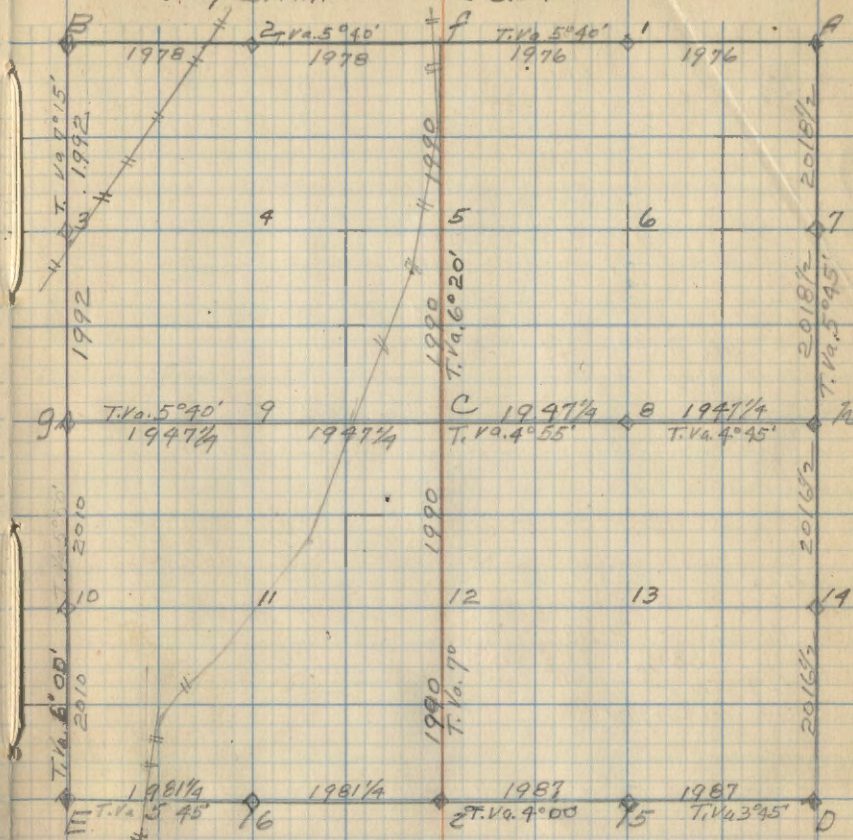 B 2 T.Va. 5°40' f T.Va. 5°40' 1 A
1978 1978 1976 1976
T. Va 7°15'
1992
1990
2018½
3 4 5 6 7
1992
1990
T.Va. 6°20'
2018½
T.Va. 5°45'
T.Va. 5°40' 9 C 1947¼ 8 1947¼
g 1947¼ 1947¼ T. Va. 4°55' T.Va. 4°45'
2010
1990
2016½
10 11 12 13 14
T.Va. 6°00'
2010
1990
T.Va. 7°
2016½
1981¼ 1981¼ 1987 1987
E T.Va 5 45' 16 T.Va. 4°00 15 T.Va 3°45' D